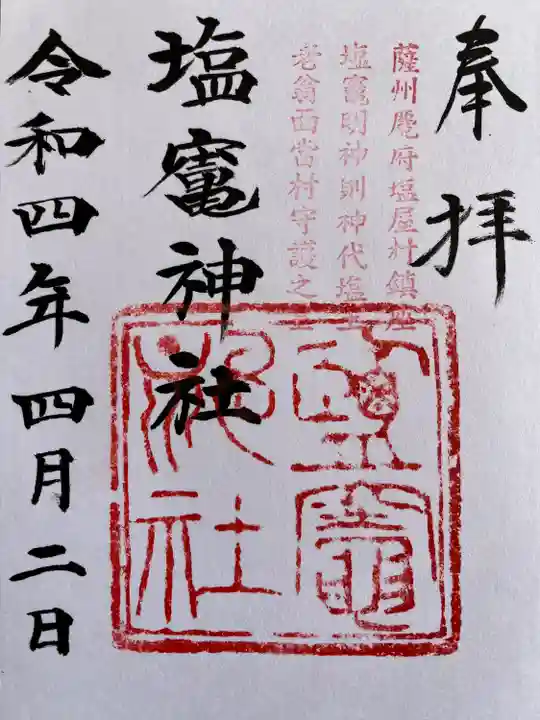 奉拝
薩州麑府塩屋村鎮座
塩竃明神則神代塩土
老翁而當村守護之
塩竃神社
令和四年四月二日
塩竈神社